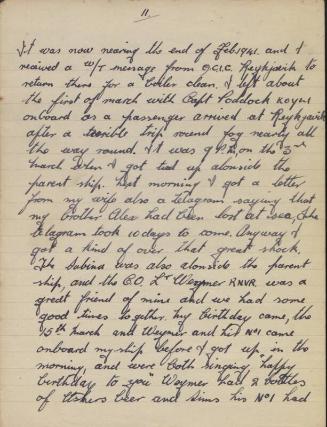 11.
It was now nearing the end of Feb 1941. and I
received a W/T message from O.C.I.C. Reykjavik to
return there for a boiler clean. I left about
the first of march with Capt Poddock
onboard as a passenger arrived at Reykjavik
after a terrible trip round fog nearly all
the way round. It was on the 3rd
march when I got tied up alongside the
parent ship. Next morning I got a letter
from my wife also a telegram saying that
my brother Alex had been lost at sea, The
telegram took 10 days to come. Anyway I
got a kind of over that great shock.
The Sabina was also alongside the parent
ship, and the C.O. Lt Weymer RNVR was a
great friend of mine and we had some
good times together. My birthday came, the
15th march and Weymer and his No1 came
onboard my ship before I got up in the
morning, and were both singing "happy
birthday to you" Weymer had 2 bottles
of Ushers beer and Sims his No1 had